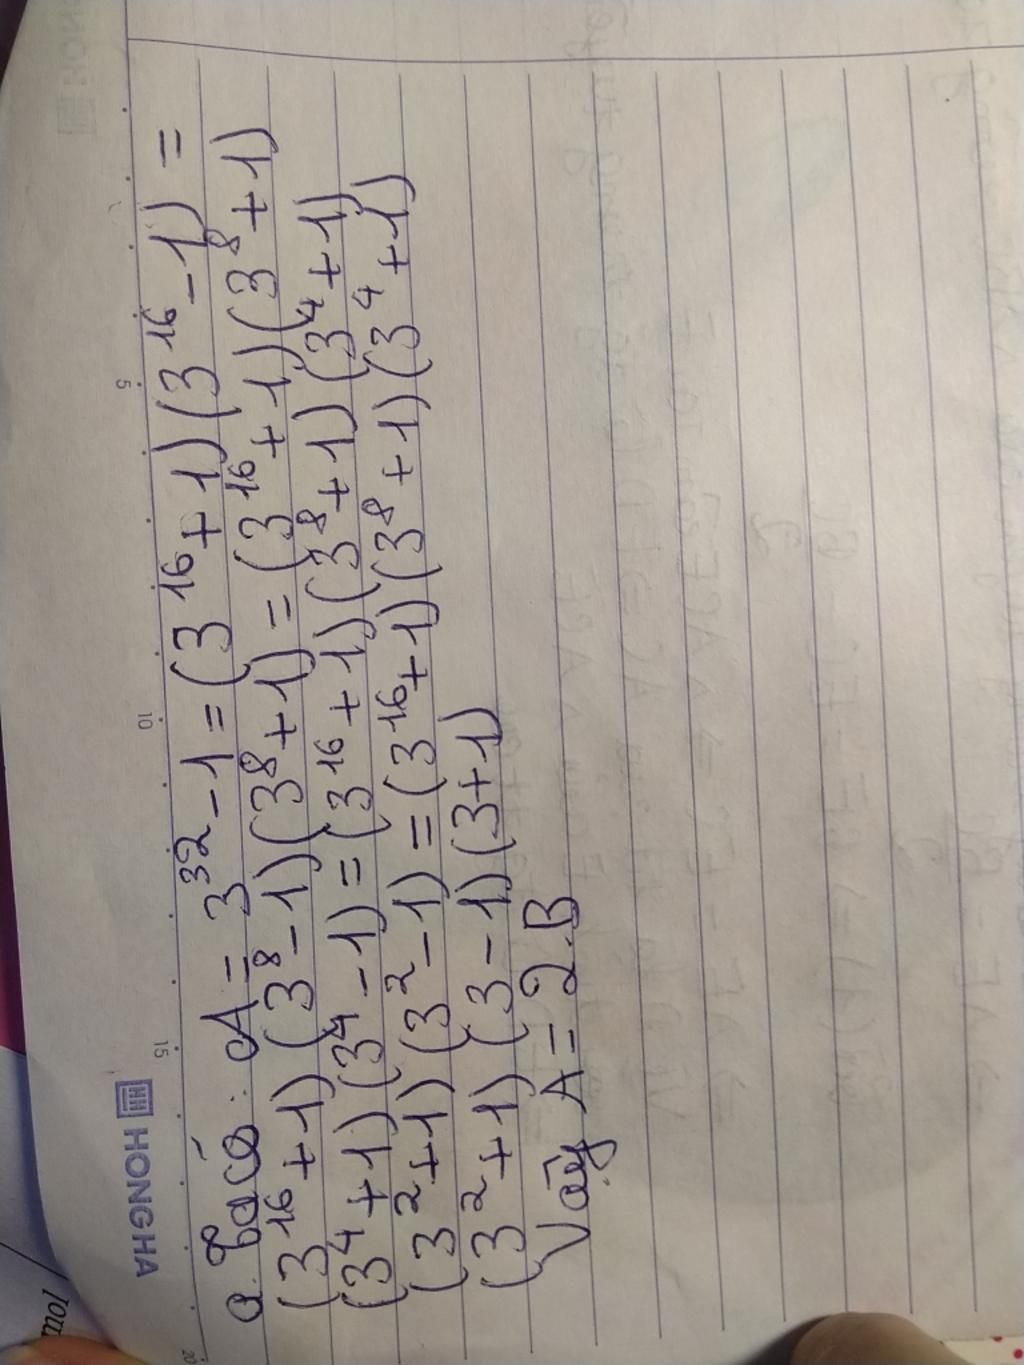 HONGHA
5
10
15
20
mol
a. Ta có: A = 3³² - 1 = (3¹⁶ + 1) (3¹⁶ - 1) =
(3¹⁶ + 1) (3⁸ - 1) (3⁸ + 1) = (3¹⁶ + 1) (3⁸ + 1)
(3⁴ + 1) (3⁴ - 1) = (3¹⁶ + 1) (3⁸ + 1) (3⁴ + 1)
(3² + 1) (3² - 1) = (3¹⁶ + 1) (3⁸ + 1) (3⁴ + 1)
(3² + 1) (3 - 1) (3 + 1)
Vậy A = 2.B